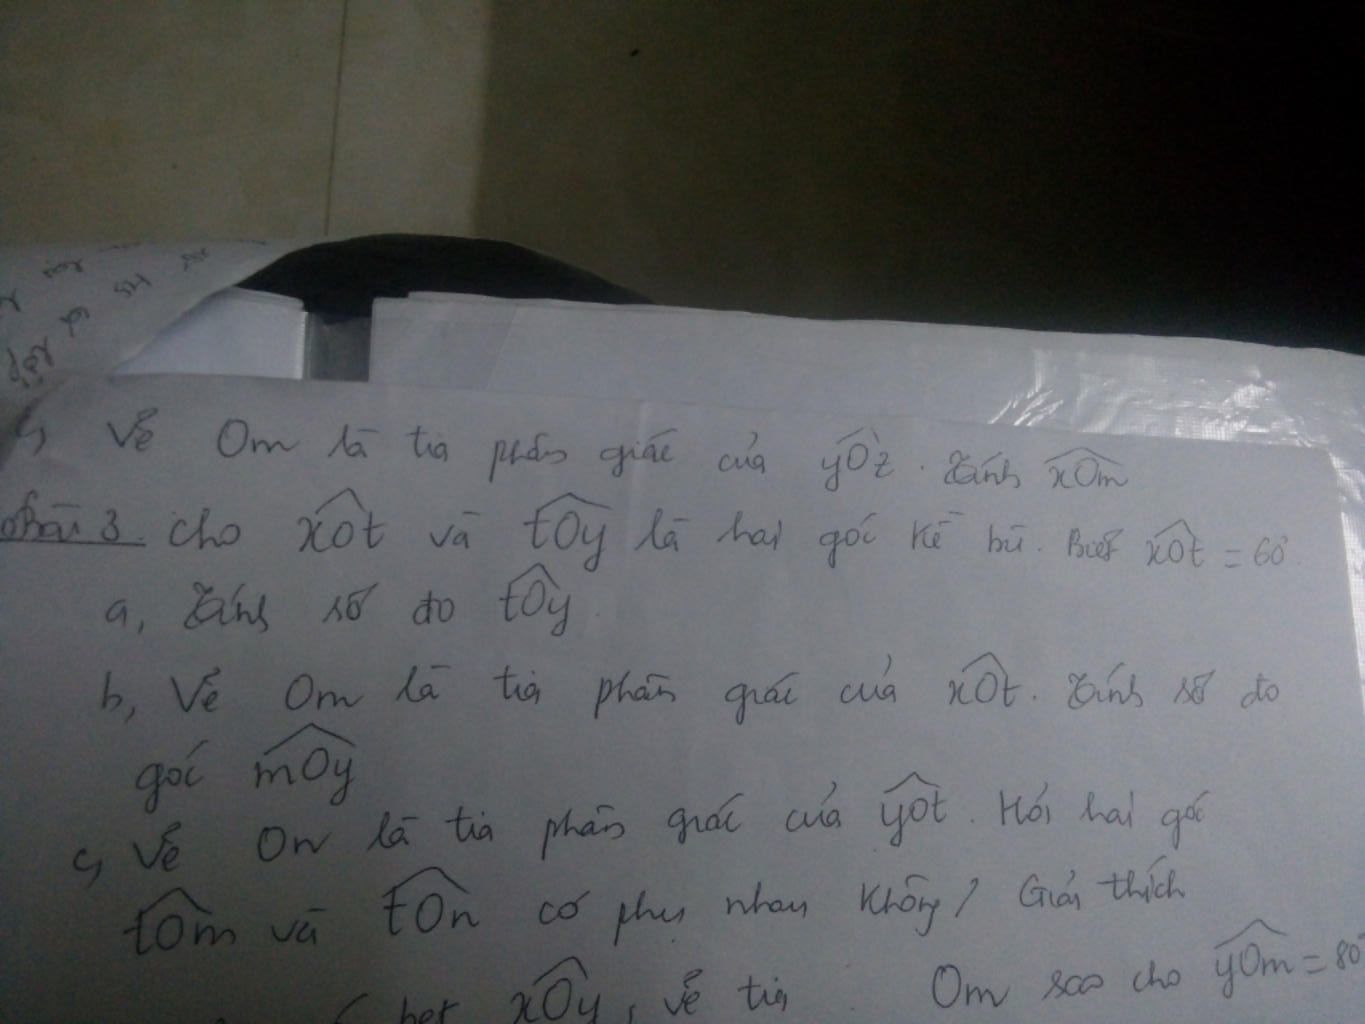 c, Vẽ Om là tia phân giác của yOz. Tính xOm
Bài 3. cho xOt và tOy là hai góc kề bù. Biết xOt = 60°.
a, Tính số đo tOy.
b, Vẽ Om là tia phân giác của xOt. Tính số đo
góc mOy
c, Vẽ On là tia phân giác của yOt. Hỏi hai góc
tOm và tOn có phụ nhau không? Giải thích
bẹt xOy, vẽ tia Om sao cho yOm = 80°